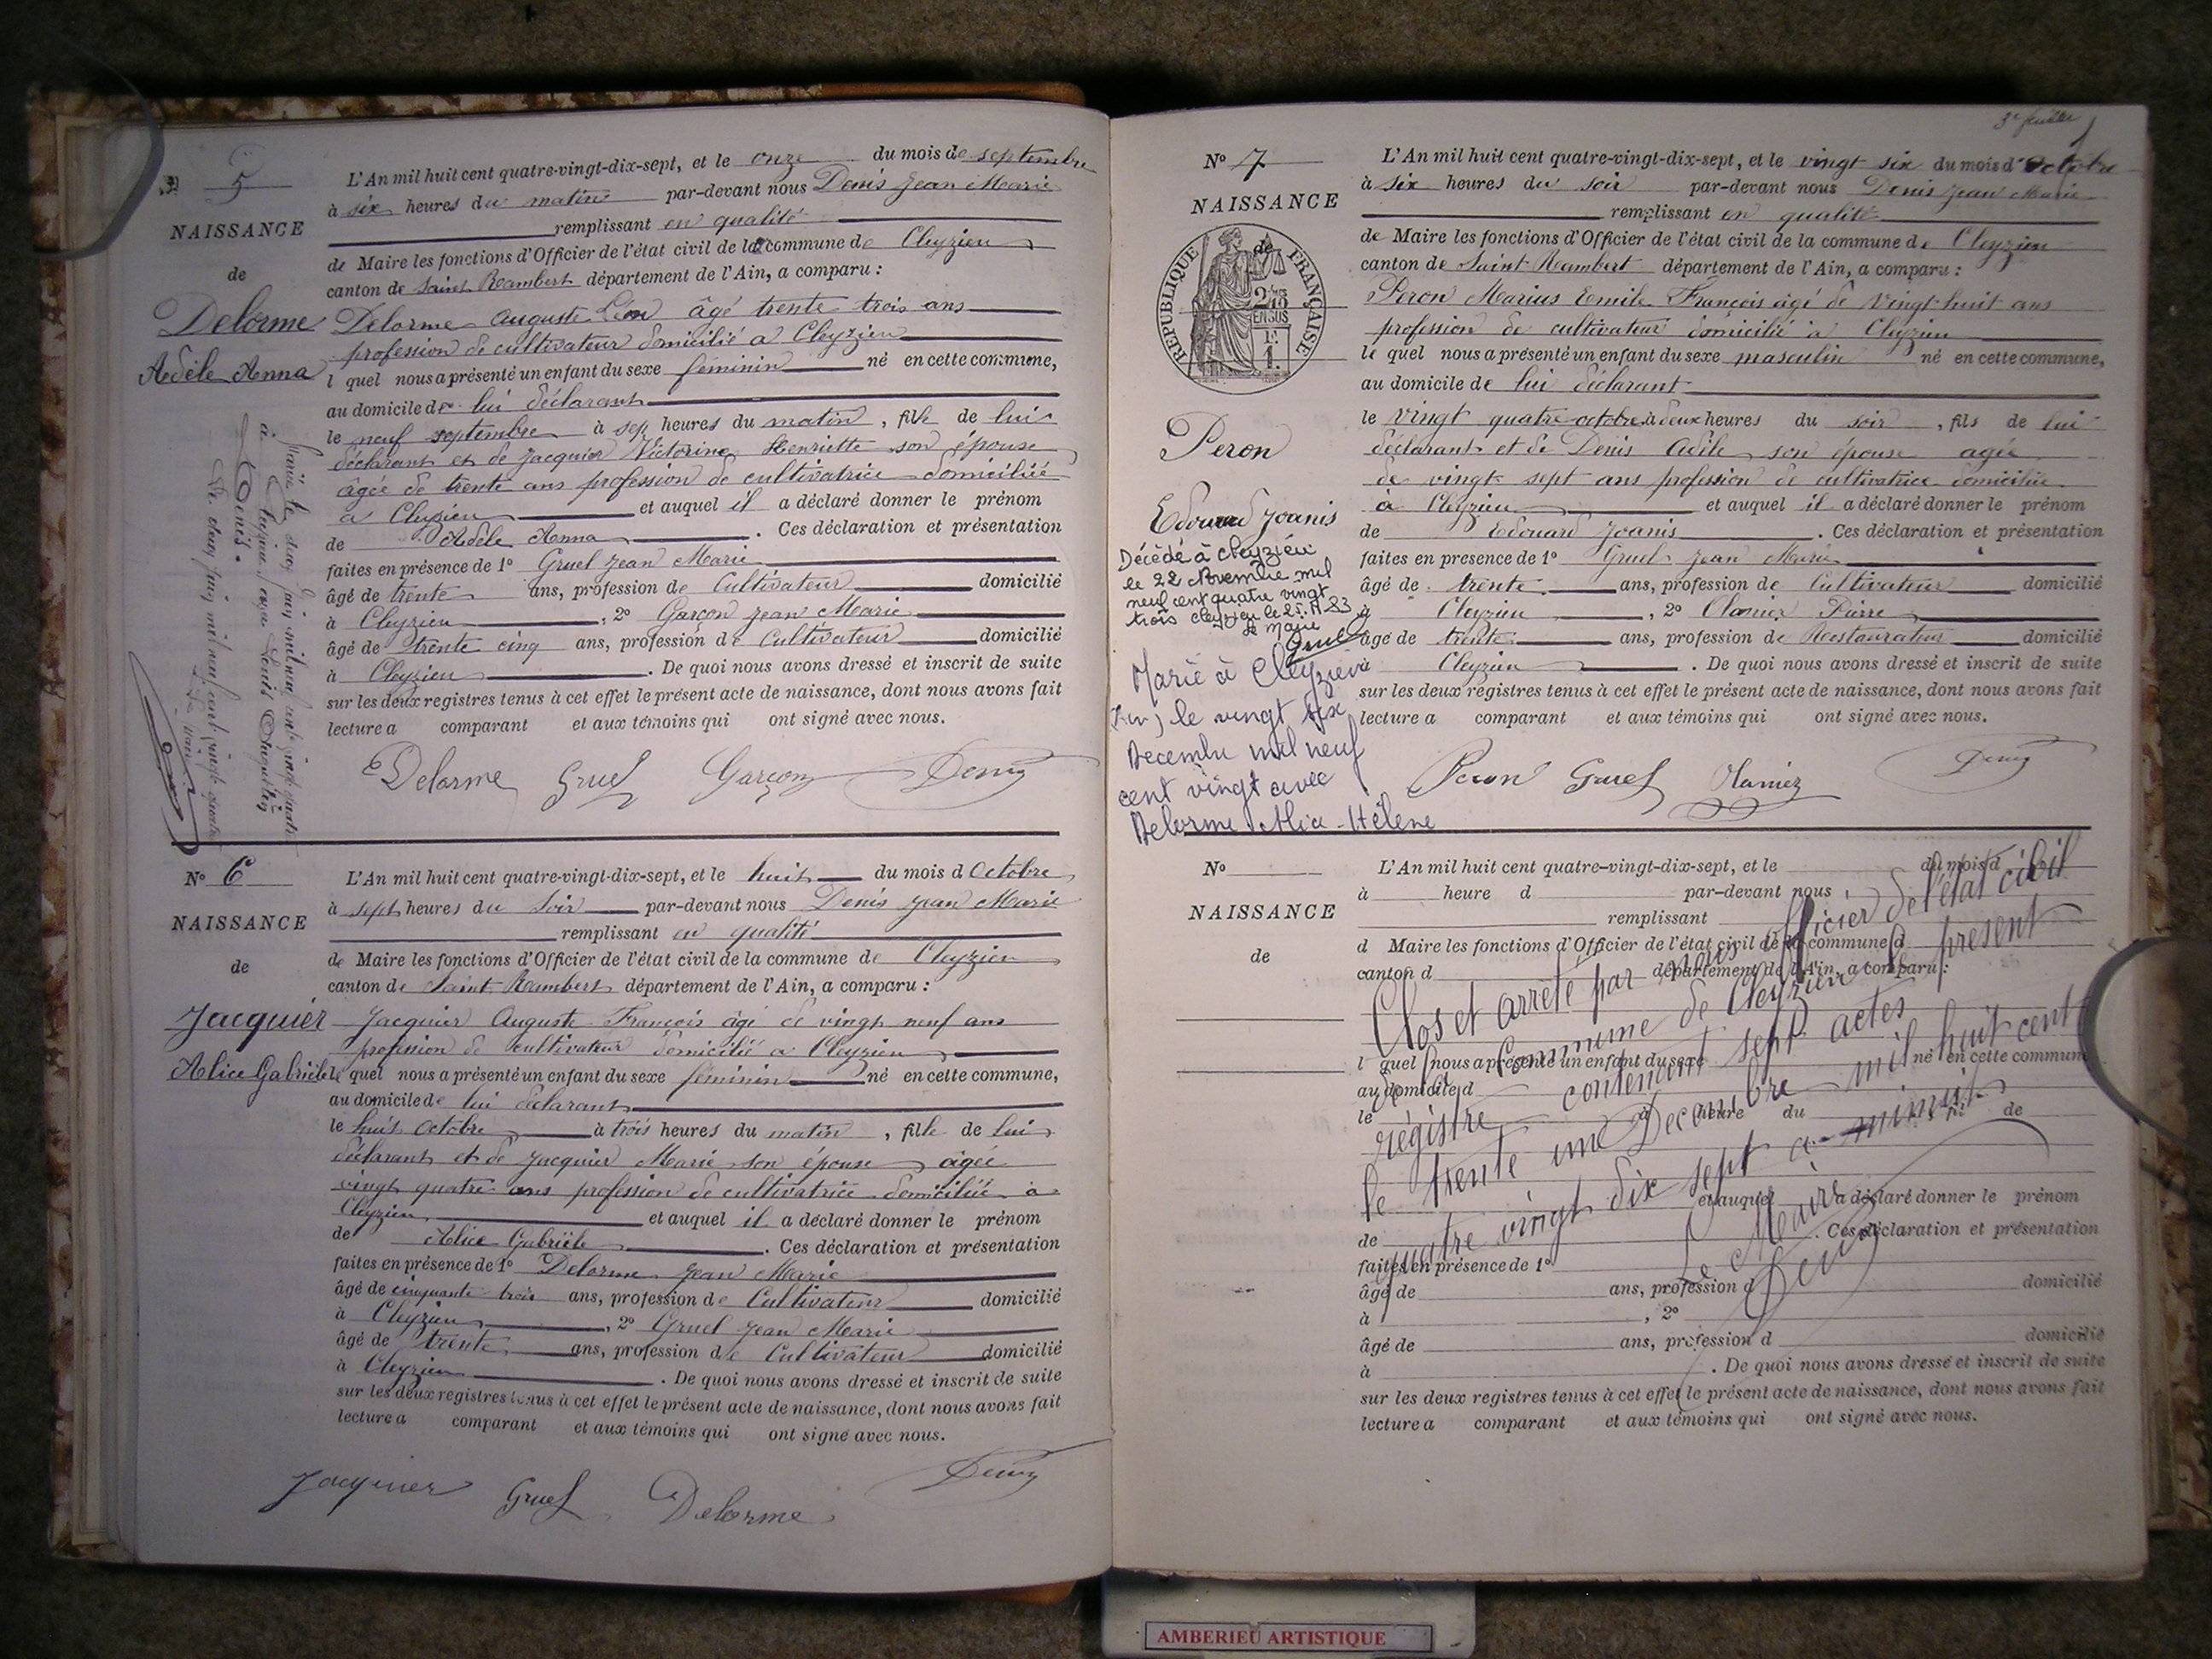 5
NAISSANCE
de
Delorme
Adèle Anna
L'An mil huit cent quatre-vingt-dix-sept, et le onze du mois de septembre
à six heures du matin par-devant nous Denis Jean Marie
remplissant en qualité
de Maire les fonctions d'Officier de l'état civil de la commune de Cleyzieu
canton de Saint Rambert département de l'Ain, a comparu :
Delorme Auguste Léon âgé trente trois ans
profession de cultivateur domicilié a Cleyzieu
l quel nous a présenté un enfant du sexe féminin né en cette commune,
au domicile de lui déclarant
le neuf septembre à sept heures du matin, fille de lui
déclarant et de Jacquier Victorine Henriette son épouse
âgée de trente ans profession de cultivatrice domiciliée
a Cleyzieu et auquel il a déclaré donner le prénom
de Adèle Anna. Ces déclaration et présentation
faites en présence de 1° Gruel Jean Marie
âgé de trente ans, profession de Cultivateur domicilié
à Cleyzieu, 2° Garçon Jean Marie
âgé de trente cinq ans, profession de Cultivateur domicilié
à Cleyzieu. De quoi nous avons dressé et inscrit de suite
sur les deux registres tenus à cet effet le présent acte de naissance, dont nous avons fait
lecture a comparant et aux témoins qui ont signé avec nous.
Delorme Gruel Garçon Denis
N° 6
NAISSANCE
de
Jacquier
Alice Gabrièle
L'An mil huit cent quatre-vingt-dix-sept, et le huit du mois d Octobre
à sept heures du soir par-devant nous Denis Jean Marie
remplissant en qualité
de Maire les fonctions d'Officier de l'état civil de la commune de Cleyzieu
canton de Saint Rambert département de l'Ain, a comparu :
Jacquier Auguste François âgé de vingt neuf ans
profession de cultivateur domicilié a Cleyzieu
le quel nous a présenté un enfant du sexe féminin né en cette commune,
au domicile de lui déclarant
le huit octobre à trois heures du matin, fille de lui
déclarant et de Jacquier Marie son épouse âgée
vingt quatre ans profession de cultivatrice domiciliée à
Cleyzieu et auquel il a déclaré donner le prénom
de Alice Gabrièle. Ces déclaration et présentation
faites en présence de 1° Delorme Jean Marie
âgé de cinquante trois ans, profession de Cultivateur domicilié
à Cleyzieu, 2° Gruel Jean Marie
âgé de trente ans, profession de Cultivateur domicilié
à Cleyzieu. De quoi nous avons dressé et inscrit de suite
sur les deux registres tenus à cet effet le présent acte de naissance, dont nous avons fait
lecture a comparant et aux témoins qui ont signé avec nous.
Jacquier Gruel Delorme Denis
3e feuillet
N° 7
NAISSANCE
de
REPUBLIQUE FRANÇAISE
2/10
EN SUS
1F.
Peron
Edouard Joanis
Décédé à Cleyzieu
le 22 Novembre mil
neuf cent quatre vingt
trois Cleyzieu le 25.11.83
Le Maire
Gruel
Marié à Cleyzieu
(Ain) le vingt six
Decembre mil neuf
cent vingt avec
Delorme Alice-Hélène
L'An mil huit cent quatre-vingt-dix-sept, et le vingt six du mois d'octobre
à six heures du soir par-devant nous Denis Jean Marie
remplissant en qualité
de Maire les fonctions d'Officier de l'état civil de la commune de Cleyzieu
canton de Saint Rambert département de l'Ain, a comparu :
Peron Marius Emile François âgé de vingt huit ans
profession de cultivateur domicilié à Cleyzieu
le quel nous a présenté un enfant du sexe masculin né en cette commune,
au domicile de lui déclarant
le vingt quatre octobre à deux heures du soir, fils de lui
déclarant et de Denis Adèle son épouse agée
de vingt sept ans profession de cultivatrice domiciliée
à Cleyzieu et auquel il a déclaré donner le prénom
de Edouard Joanis. Ces déclaration et présentation
faites en presence de 1° Gruel Jean Marie
âgé de trente ans, profession de Cultivateur domicilié
à Cleyzieu, 2° Pierre
âgé de trente ans, profession de Restaurateur domicilié
à Cleyzieu. De quoi nous avons dressé et inscrit de suite
sur les deux registres tenus à cet effet le présent acte de naissance, dont nous avons fait
lecture a comparant et aux témoins qui ont signé avec nous.
Peron Gruel Denis
N°
NAISSANCE
de
L'An mil huit cent quatre-vingt-dix-sept, et le du mois d
à heure d par-devant nous
remplissant
d Maire les fonctions d'Officier de l'état civil de la commune d
canton d département de l'Ain, a comparu :
l quel nous a présenté un enfant du sexe né en cette commune
au domicile d
le à heure du de
et auquel a déclaré donner le prénom
de . Ces déclaration et présentation
faites en présence de 1°
âgé de ans, profession d domicilié
à , 2°
âgé de ans, profession d domicilié
à . De quoi nous avons dressé et inscrit de suite
sur les deux registres tenus à cet effet le présent acte de naissance, dont nous avons fait
lecture a comparant et aux témoins qui ont signé avec nous.
Clos et arrêté par nous officier de l'état civil
de la Commune de Cleyzieu le présent
régistre contenant sept actes
le trente une Decembre mil huit cent
quatre vingt dix sept à minuit
Le Maire
Denis
AMBERIEU ARTISTIQUE